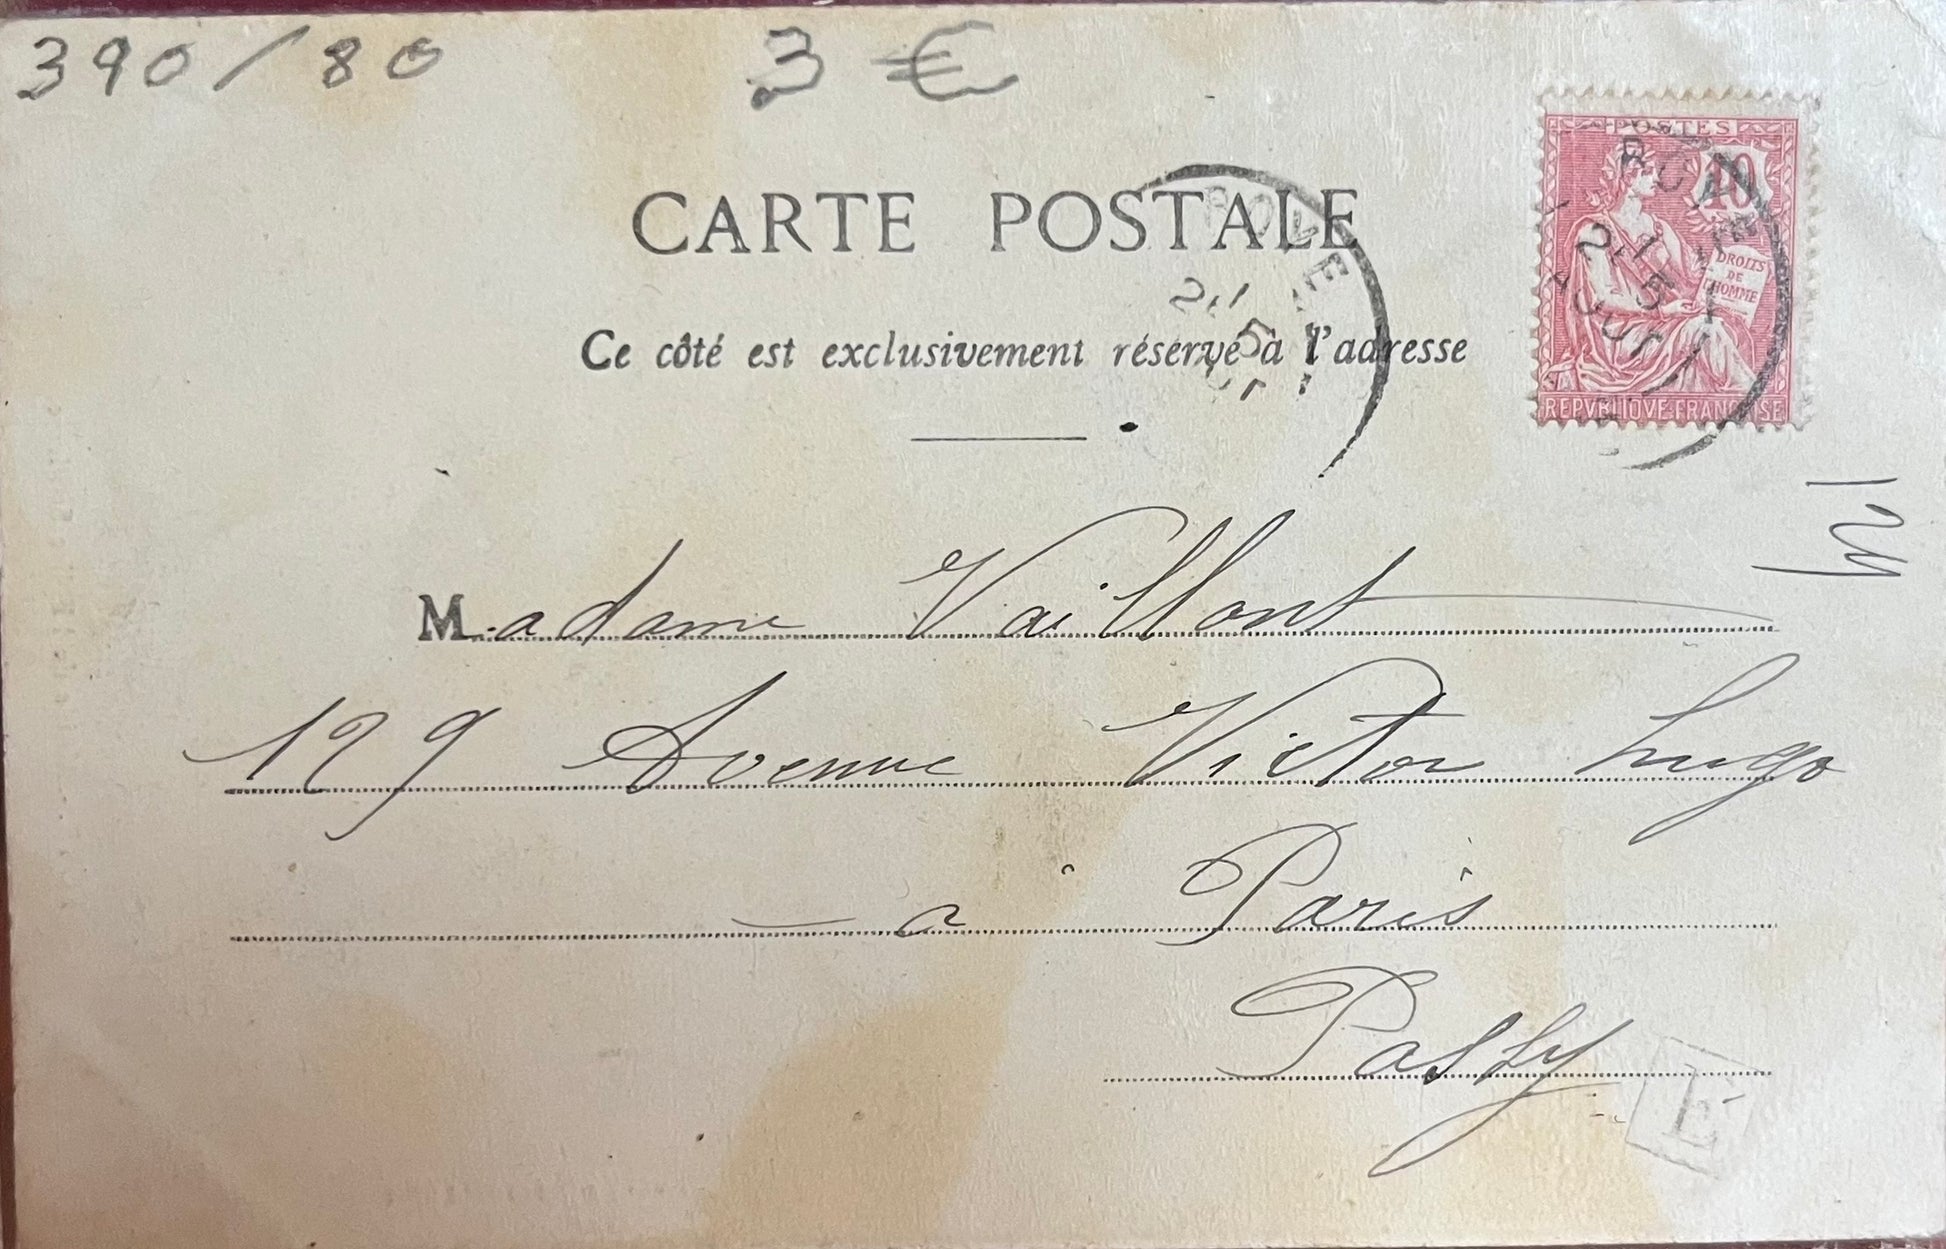 390/80 3 €
CARTE POSTALE
Ce côté est exclusivement réservé à l'adresse
POSTES
10
DROITS
DE
L'HOMME
REPVBLIQVE FRANÇAISE
Madame Vaillant
129 Avenue Victor hugo
à Paris
Passy
E